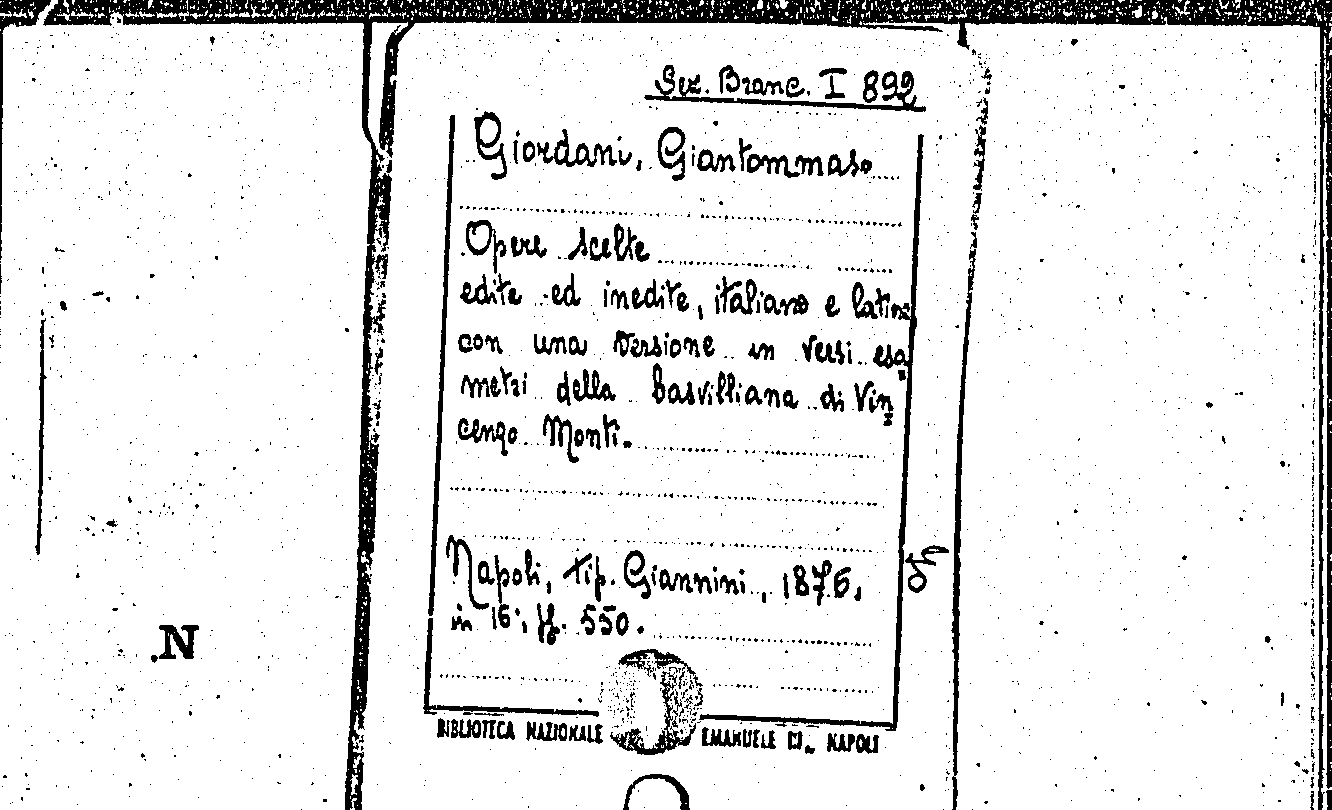 Sez. Branc. I 892
Giordani, Giantommaso
Opere scelte
edite ed inedite, italiane e latine
con una versione in versi esa=
metri della Basvilliana di Vin=
cenzo Monti.
Napoli, tip. Giannini, 1876.
in 16°, ff. 550.
BIBLIOTECA NAZIONALE EMANUELE III„ NAPOLI
.N